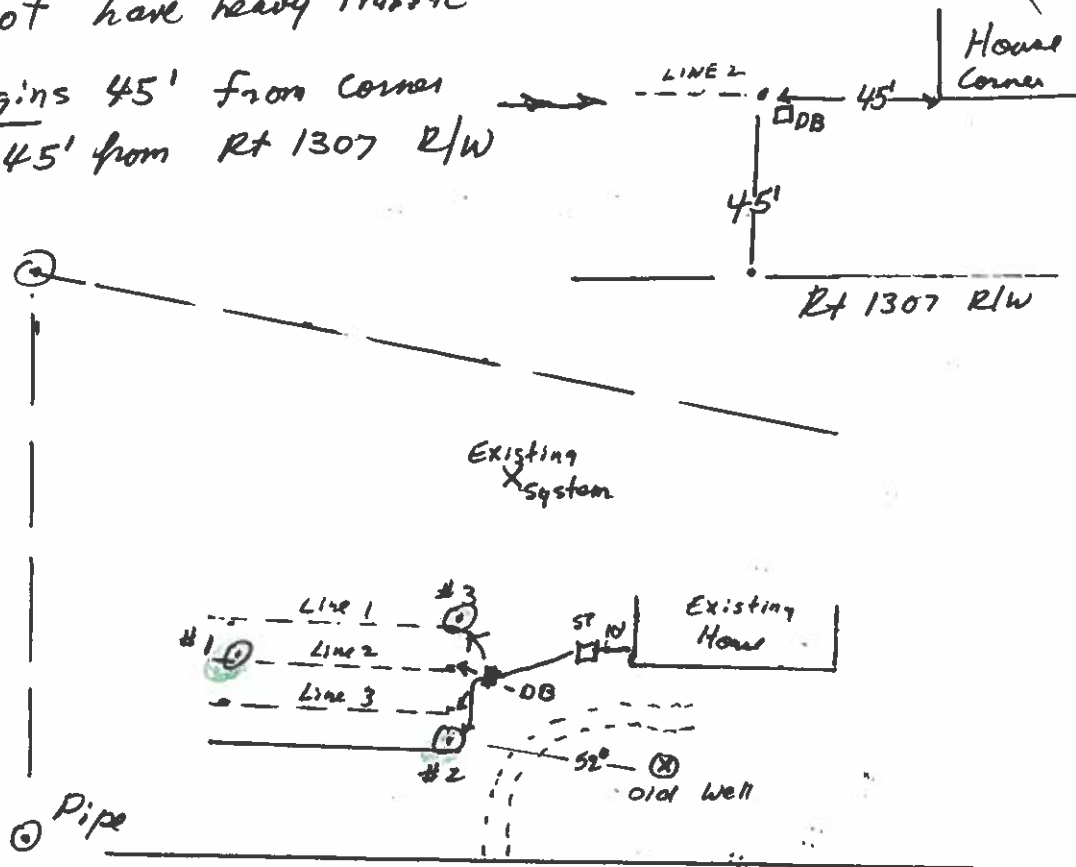 ot have heavy traffic
gins 45' from Corner
45' from Rt 1307 R/W
LINE 2
45'
House
Corner
DB
45'
Rt 1307 R/W
Existing
X
System
#3
Line 1
#1
Line 2
Line 3
ST
10'
Existing
House
DB
52'
#2
Old Well
Pipe